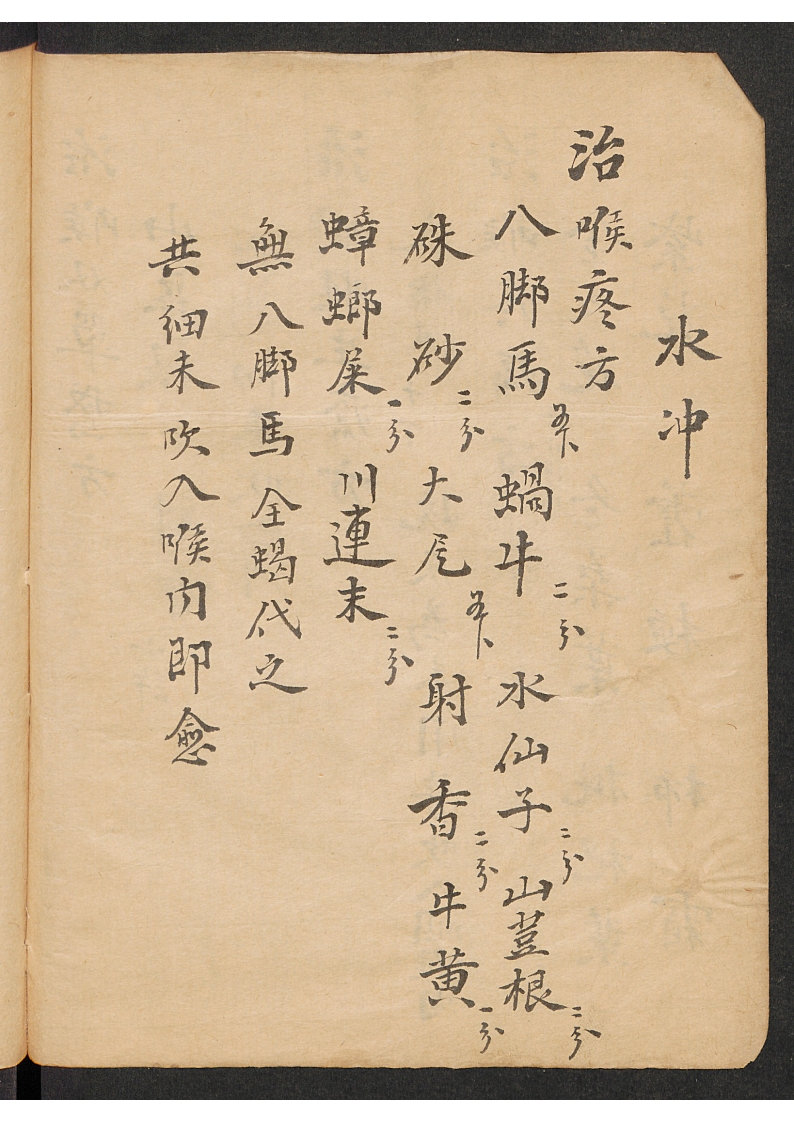 水冲
治喉疼方
八脚馬 蝸牛二分 水仙子二分 山荳根二分
硃砂二分 大尾 射香二分 牛黄一分
蟑螂屎一分 川連末二分
無八脚馬全蝎代之
共細末吹入喉内即愈